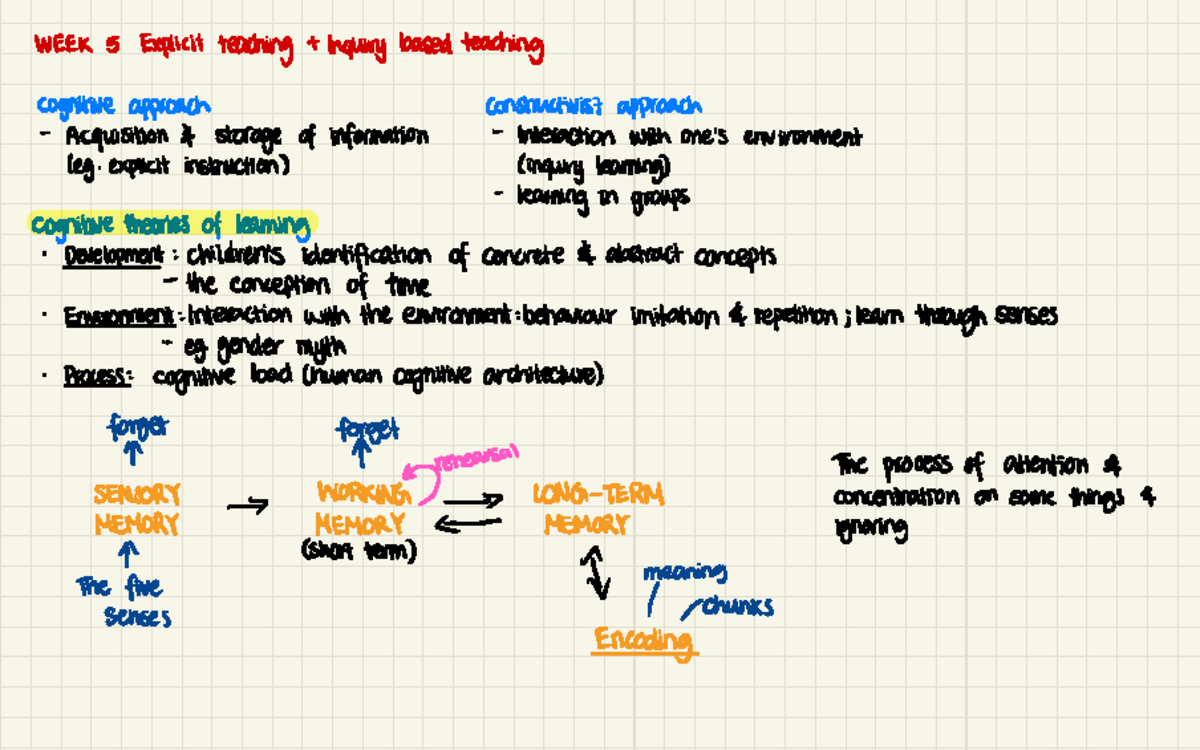 WEEK 5 Explicit teaching + Inquiry based teaching
cognitive approach
- Acquisition & storage of information
(eg. explicit instruction)
constructivist approach
- Interaction with one's environment
(inquiry learning)
- learning in groups
cognitive theories of learning
· Development: children's identification of concrete & abstract concepts
- the conception of time
· Environment: Interaction with the environment: behaviour imitation & repetition; learn through senses
- eg gender myth
· Process: cognitive load (human cognitive architecture)
forget
forget
rehearsal
SENSORY
MEMORY
WORKING
MEMORY
(short term)
LONG-TERM
MEMORY
The five
senses
meaning
chunks
Encoding
The process of attention &
concentration on some things &
ignoring